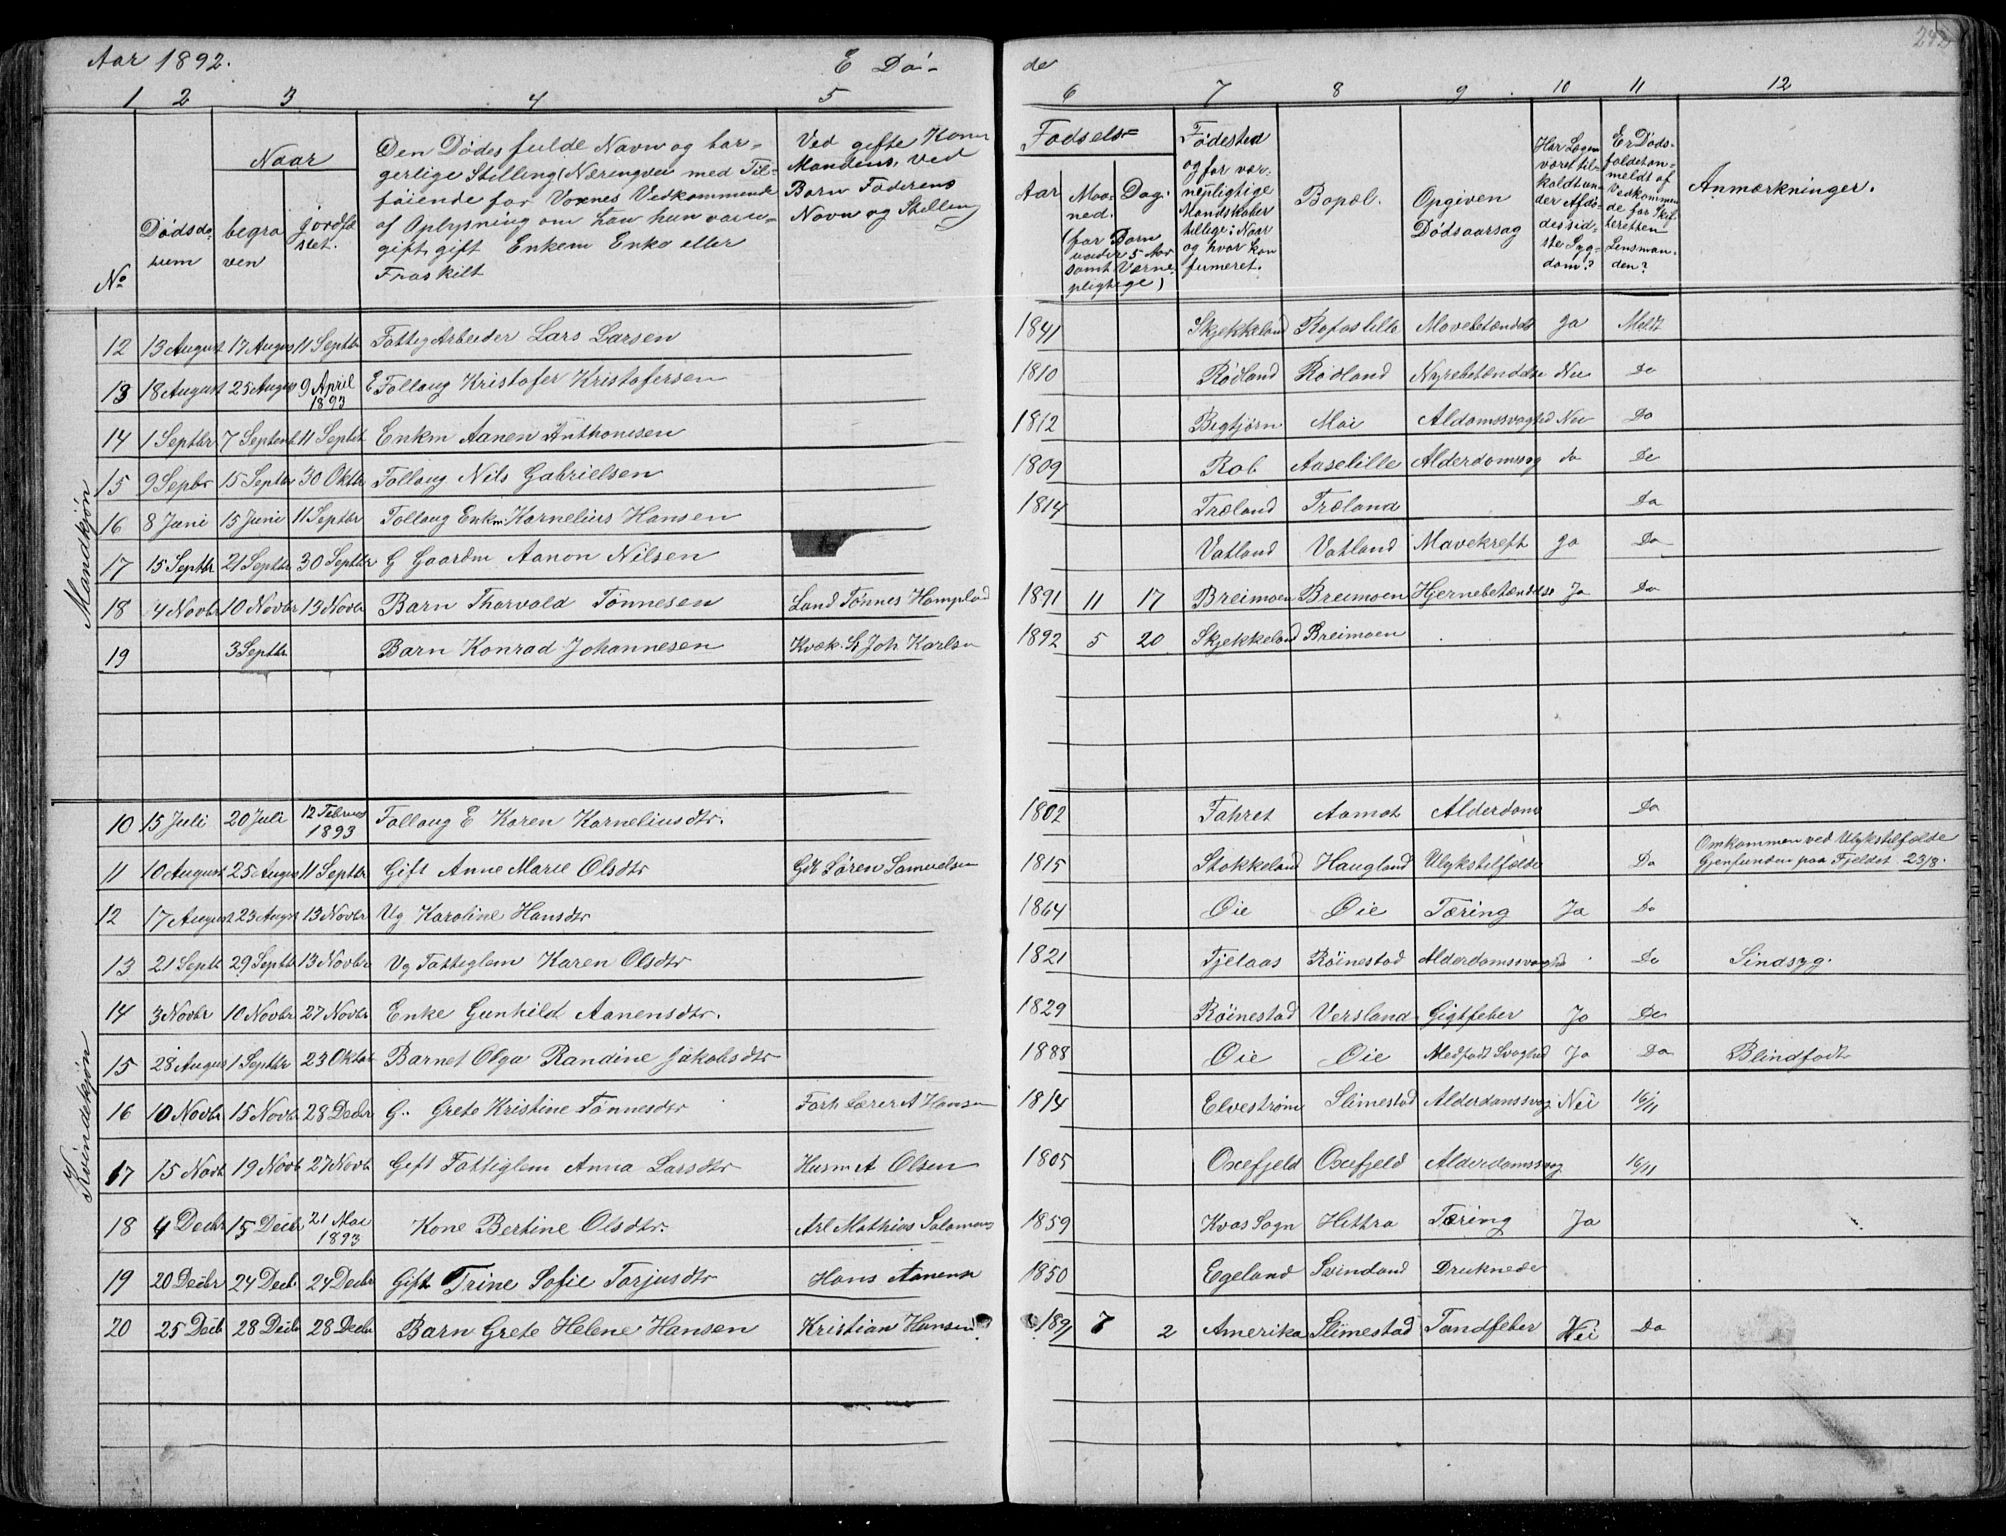 Aar 1892. E Dö- de 242
1 2 3 4 5 6 7 8 9 10 11 12
No
Dødsdatum
Naar
begraven
jordfæstet.
Den Dødes fulde Navn og borgerlige Stilling (Næringvei med Tilføiende for Voxnes Vedkommende af Oplysning om han hun var ugift gift Enkem Enke eller Fraskilt
Ved gifte Koner Mandens, ved Barn Faderens Navn og Stilling
Fødsels=
Aar Maaned. Dag.
(for Børn under 5 Aar samt Værnepligtige)
Fødested og for værnepligtige Mandskaber tillige: Naar og hvor konfirmeret.
Bopæl.
Opgiven Dødsaarsag
Har Lægen været tilkaldt under Afdødes sidste Sygdom?
Er Dødsfaldet anmeldt af Vedkommende for Skifteretten Lensmanden?
Anmærkninger.
Mandkjøn
12 13 August 17 Augus 11 Septbr Fattig Arbeider Lars Larsen 1841 Skjekkeland Rafostille Mavebetændels Ja Meldt
13 18 August 25 Augus 9 April 1893 E Follaug Kristofer Kristofersen 1810 Rødland Rødland Nyrebetændelse Nei Do
14 1 Septbr 7 Septenb 11 Septbr Enkm Aanen Anthonisen 1812 Bigtjörn Moi Aldomssvaghed Nei Do
15 9 Sepbr 15 Septbr 30 Oktbr Follaug Nils Gabrielsen 1809 Rob Aaselille Alderdomssvag do Do
16 8 Juni 15 Juni 11 Septbr Follaug Enkm Kornelius Hansen 1814 Træland Træland Do
17 15 Septbr 21 Septbr 30 Septbr G Gaardm Aanon Nilsen Vatland Vatland Mavekreft Ja Do
18 4 Novbr 10 Novbr 13 Novbr Barn Thorvald Tönnesen Land Tönnes 1891 11 17 Breimoen Breimoen Hjernebetændelse Ja Do
19 3 Septbr Barn Konrad Johannesen Kvæk. Joh Karlsen 1892 5 20 Skjekkeland Breimoen
Kvindekjøn
10 15 Juli 20 Juli 12 Februar 1893 Follaug E Karen Korneliusdtr. 1802 Fahret Aamot Alderdom Do
11 10 August 25 Augus 11 Septbr Gift Anne Marie Olsdtr Gdr Søren Samuelsen 1815 Stokkeland Haugland Ulykstilfælde Do Omkommen ved Ulykstilfælde
Gjenfunden paa Fjeldet 23/8.
12 17 August 23 Augst 13 Novbr Ug Karoline Hansdtr 1864 Øie Øie Tæring Ja Do
13 21 Septb 29 Septbr 13 Novbr Ug Fattiglem Karen Olsdtr 1821 Fjelaas Röinestad Alderdomssvaghed Do Sindsyg.
14 3 Novbr 10 Novbr 27 Novbr Enke Gunhild Aanensdtr. 1829 Röinestad Versland Gigtfeber Ja Do
15 28 Augus 1 Septbr 23 Oktob Barnet Olga Randine Jakobsdtr 1888 Øie Øie Medfødt Svaghed Ja Do Blindfødt
16 10 Novbr 15 Novbr 28 Decbr G.. Grete Kristine Tønnesdtr Forh Lærer A Hansen 1814 Elvestrøm Slimestad Alderdomssvag Nei 16/11
17 15 Novb 19 Novb 27 Novb Gift Fattiglem Anna Larsdtr Husm A Olsen 1805 Oxefjeld Oxefjeld Alderdomssvag 16/11
18 4 Decbr 15 Decbr 21 Mai 1893 Kone Bertine Olsdtr. Arb Mathias Salamons 1859 Kvas Sogn Hættra Tæring Ja
19 20 Decbr 24 Decb. 24 Decbr Gift Trine Sofie Torjusdtr Hans Aanensen 1850 Egeland Svindland Druknede
20 25 Decb 28 Decbr 28 Decbr Barn Grete Helene Hansen Kristian Hansen 1891 7 2 Amerika Slimestad Tandfeber Nei Do